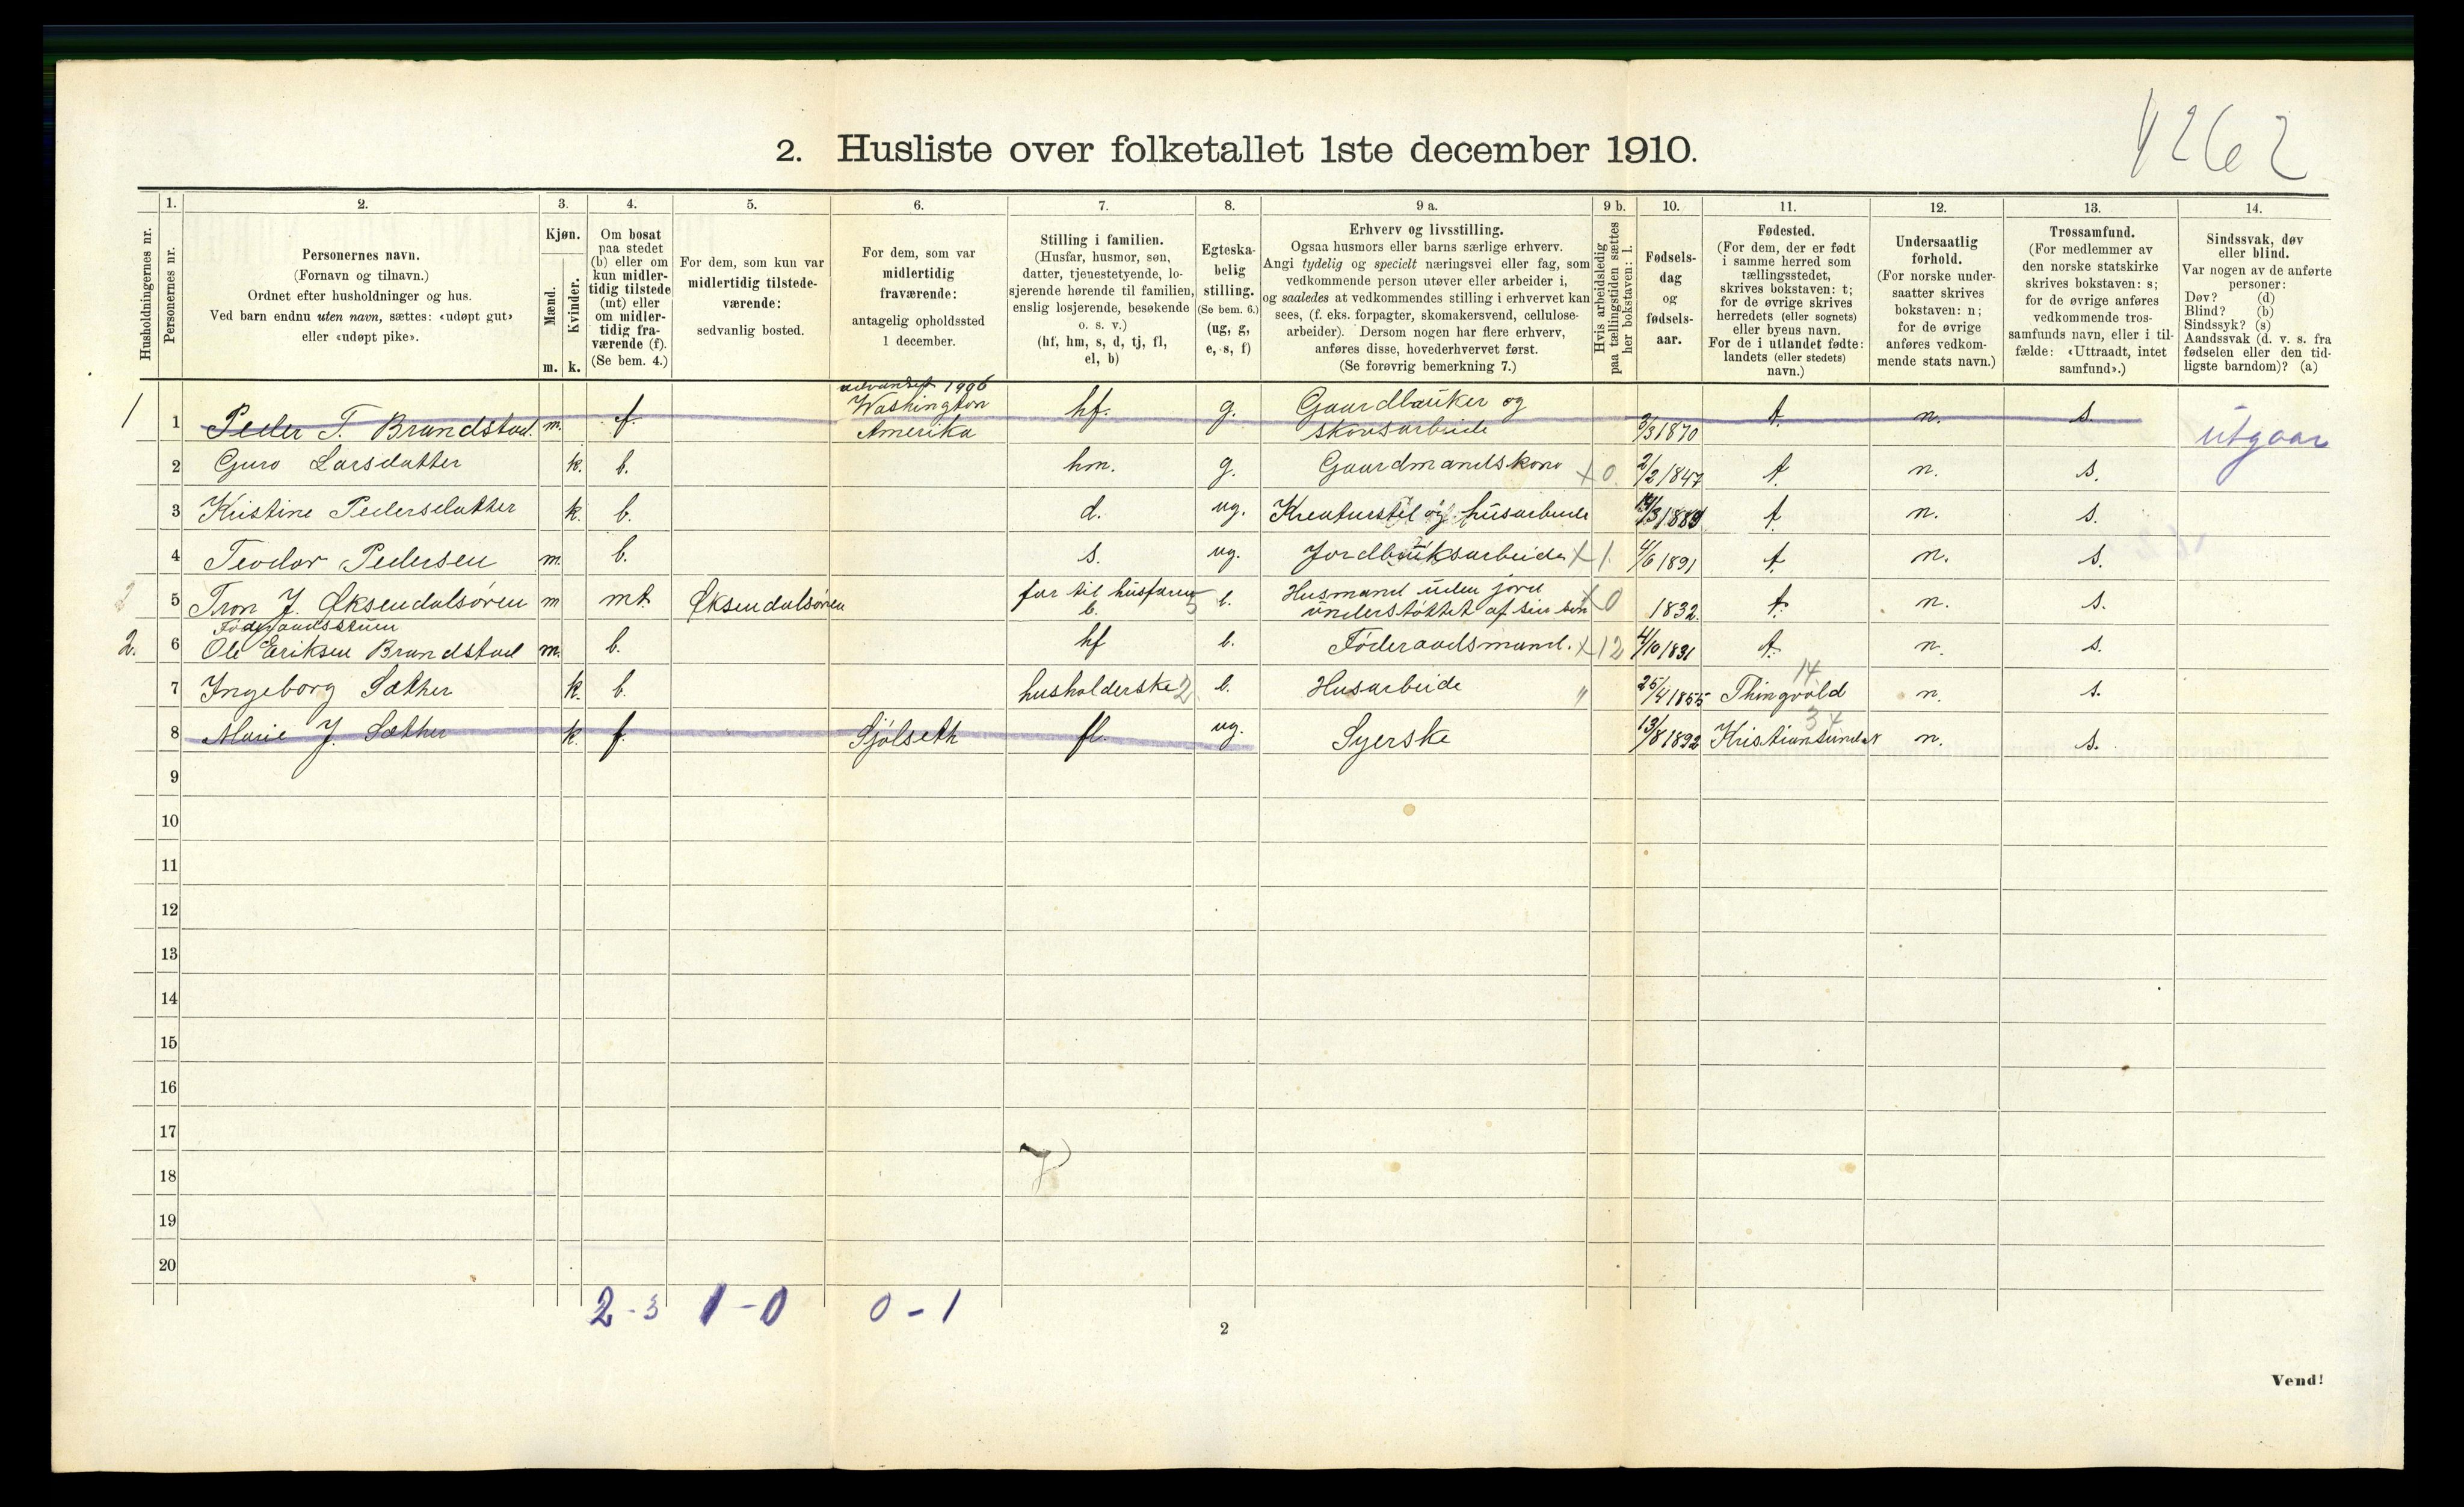 4262
2. Husliste over folketallet 1ste december 1910.
Husholdningernes nr.
1.
Personernes nr.
2.
Personernes navn.
(Fornavn og tilnavn.)
Ordnet efter husholdninger og hus.
Ved barn endnu uten navn, sættes: «udøpt gut»
eller «udøpt pike».
3.
Kjøn.
Mænd.
Kvinder.
m. k.
4.
Om bosat
paa stedet
(b) eller om
kun midler-
tidig tilstede
(mt) eller
om midler-
tidig fra-
værende (f).
(Se bem. 4.)
5.
For dem, som kun var
midlertidig tilstede-
værende:
sedvanlig bosted.
6.
For dem, som var
midlertidig
fraværende:
antagelig opholdssted
1 december.
7.
Stilling i familien.
(Husfar, husmor, søn,
datter, tjenestetyende, lo-
sjerende hørende til familien,
enslig losjerende, besøkende
o. s. v.)
(hf, hm, s, d, tj, fl,
el, b)
8.
Egteska-
belig
stilling.
(Se bem. 6.)
(ug, g,
e, s, f)
9 a.
Erhverv og livsstilling.
Ogsaa husmors eller barns særlige erhverv.
Angi tydelig og specielt næringsvei eller fag, som
vedkommende person utøver eller arbeider i,
og saaledes at vedkommendes stilling i erhvervet kan
sees, (f. eks. forpagter, skomakersvend, cellulose-
arbeider). Dersom nogen har flere erhverv,
anføres disse, hovederhvervet først.
(Se forøvrig bemerkning 7.)
9 b.
Hvis arbeidsledig
paa tællingstiden sættes
her bokstaven: l.
10.
Fødsels-
dag
og
fødsels-
aar.
11.
Fødested.
(For dem, der er født
i samme herred som
tællingsstedet,
skrives bokstaven: t;
for de øvrige skrives
herredets (eller sognets)
eller byens navn.
For de i utlandet fødte:
landets (eller stedets)
navn.)
12.
Undersaatlig
forhold.
(For norske under-
saatter skrives
bokstaven: n;
for de øvrige
anføres vedkom-
mende stats navn.)
13.
Trossamfund.
(For medlemmer av
den norske statskirke
skrives bokstaven: s;
for de øvrige anføres
vedkommende tros-
samfunds navn, eller i til-
fælde: «Uttraadt, intet
samfund».)
14.
Sindssvak, døv
eller blind.
Var nogen av de anførte
personer:
Døv? (d)
Blind? (b)
Sindssyk? (s)
Aandssvak (d. v. s. fra
fødselen eller den tid-
ligste barndom)? (a)
1 1 Peder T. Brandstad. m. f. Washington Amerika hf. g. Gaardbruker og skovsarbeide 3/3 1870 t. n. s. utgaar
2 Guro Larsdatter k. b. hm. g. Gaardmandskone x 0 2/2 1847 t. n. s.
3 Kristine Pedersdatter k. b. d. ug. Kreaturstel og husarbeide 1889 t n. s.
4 Teodor Pedersen m. b. s. ug. Jordbruksarbeide x 1. 4/6 1891 t. n. s.
2 5 Tron J. Øksendalsøren m mt. Øksendalsøren far til husfaren b. e. Husmand uden jord understøttet af sin søn x 0 1832. t. n. s.
Føderaadsstuen
2. 6 Ole Eriksen Brandstad m. b. hf e. Føderaadsmand. x 12 4/10 1831 t. n. s.
7 Ingeborg Sæther k. b. husholderske 2 e. Husarbeide " 25/4 1855 Thingvold 14 n. s.
8 Marie J. Sæther k. f. Sjølseth fl. ug. Syerske 13/8 1892 Kristiansund N 34 n. s.
9
10
11
12
13
14
15
16
17
18
19
20
2 - 3 1 - 0 0 - 1
2
Vend!